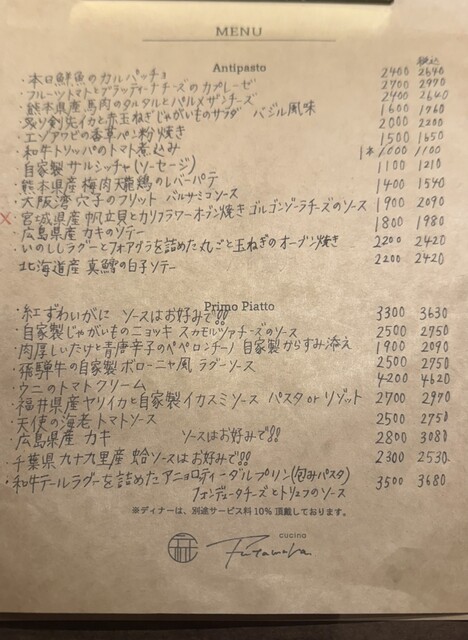 MENU
Antipasto
税込
・本日鮮魚のカルパッチョ 2400 2640
・フルーツトマトとブラッティーナチーズのカプレーゼ 2700 2970
・熊本県産馬肉のタルタルとパルメザンチーズ 2400 2640
剣先イカと赤玉ねぎじゃがいものサラダ バジル風味 1600 1760
・エゾアワビの香草パン粉焼き 2000 2200
・和牛トリッパのトマト煮込み 1500 1650
・自家製サルシッチャ(ソーセージ) 1本/1000 1100
・熊本県産梅肉天龍鶏のレバーパテ 1100 1210
・大阪湾穴子のフリット バルサミコソース 1400 1540
・宮城県産帆立貝とカリフラワーオーブン焼き ゴルゴンゾーラチーズのソース 1900 2090
・広島県産カキのソテー 1800 1980
・いのししラグーとフォアグラを詰めた丸ごと玉ねぎのオーブン焼き 2200 2420
北海道産 真鱈の白子ソテー 2200 2420
Primo Piatto
・紅ずわいがに ソースはお好みで!! 3300 3630
・自家製じゃがいものニョッキ スカモルツァチーズのソース 2500 2750
・肉厚しいたけと青唐辛子のペペロンチーノ 自家製からすみ添え 1900 2090
・飛騨牛の自家製ボローニャ風 ラグーソース 2500 2750
・ウニのトマトクリーム 4200 4620
・福井県産ヤリイカと自家製イカスミソース パスタ or リゾット 2700 2970
・天使の海老 トマトソース 2500 2750
・広島県産 カキ ソースはお好みで!! 2800 3080
・千葉県九十九里産 蛤ソースはお好みで!! 2300 2530
・和牛テールラグーを詰めた アニョロティーダルプリン(包みパスタ) 3500 3680
フォンデュータチーズとトリュフのソース
※ディナーは、別途サービス料10%頂戴しております。
cucina